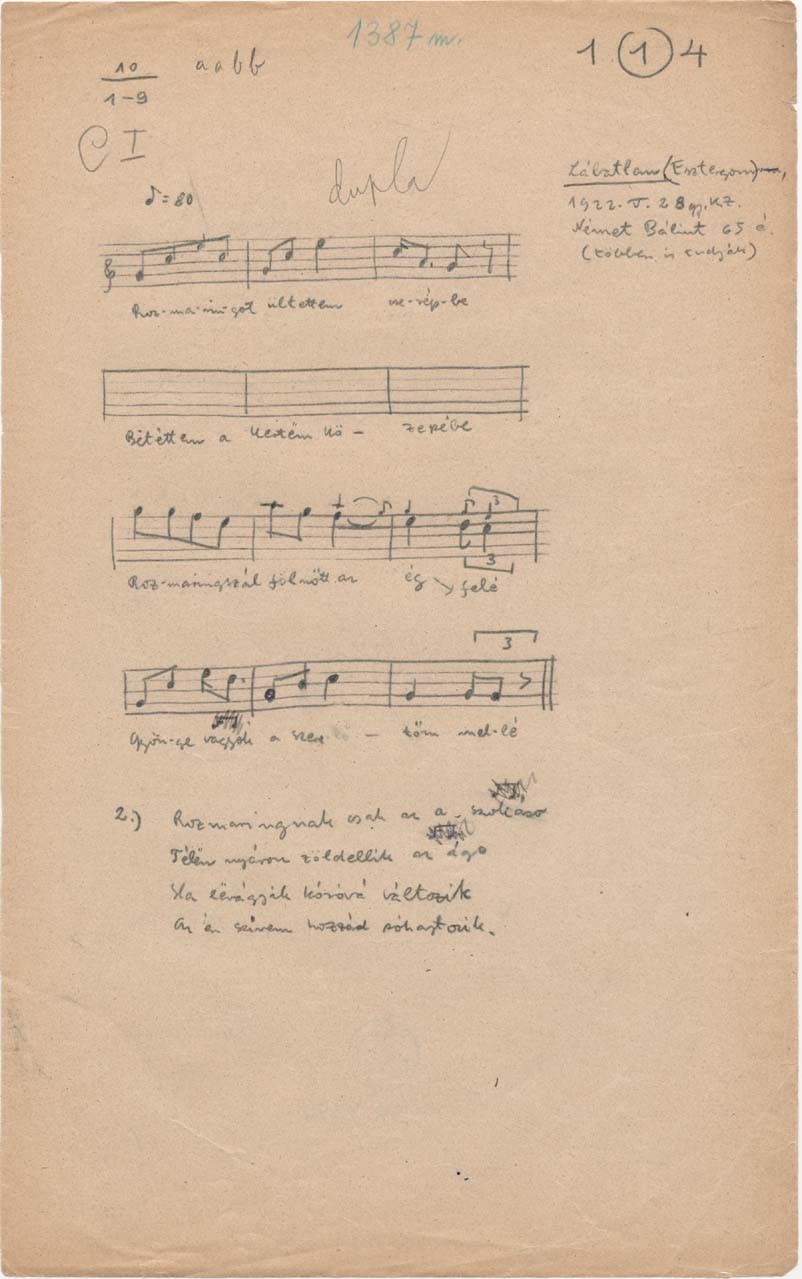 1387 m.
10
1-9
a a b b
1 1 4
C I
dupla
♩=80
Lábatlan (Esztergom),
1922. V. 28 gy. K.Z.
Német Bálint 65 é.
(többen is tudják)
Roz-ma-ringot ültettem cse-rép-be
Bététtem a kertëm kö- zepébe
3
Roz-maringszál fölnőtt az ég felé
3
3
Gyön-ge vagyok a szere - tőm mel-lé
2.) Rozmaringnak csak az a szokáso
Télën nyáron zöldellik az ágo
Ha lëvágják kóróvá változik
Az én szivem hozzád sóhajtozik.